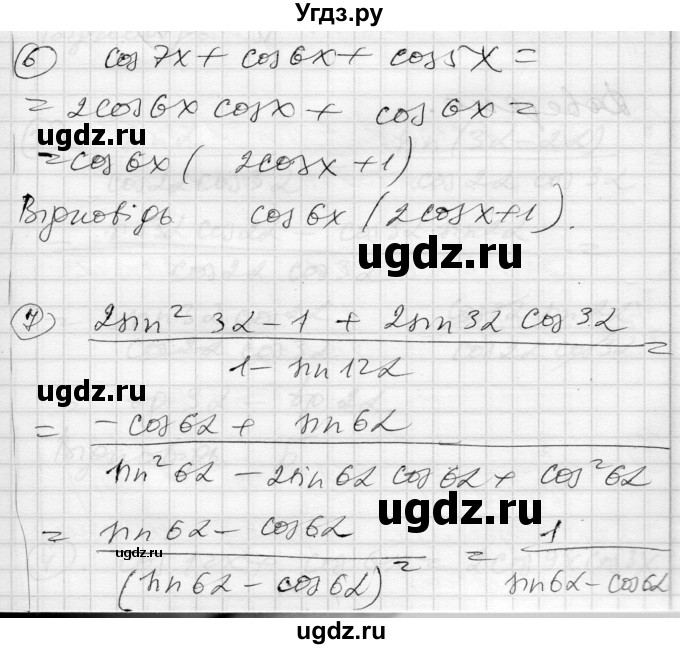 Угдз.ру
6 cos 7x + cos 6x + cos 5x =
= 2cos 6x cos x + cos 6x =
ugdz.ru
= cos 6x ( 2cos x + 1)
Відповідь cos 6x (2cos x + 1).
ugdz.ru
7 2sin² 3α - 1 + 2sin 3α cos 3α =
1 - sin 12α
ugdz.ru
= - cos 6α + sin 6α
sin² 6α - 2sin 6α cos 6α + cos² 6α
ugdz.ru
= sin 6α - cos 6α = 1
ugdz.ru
(sin 6α - cos 6α)² sin 6α - cos 6α
ugdz.ru